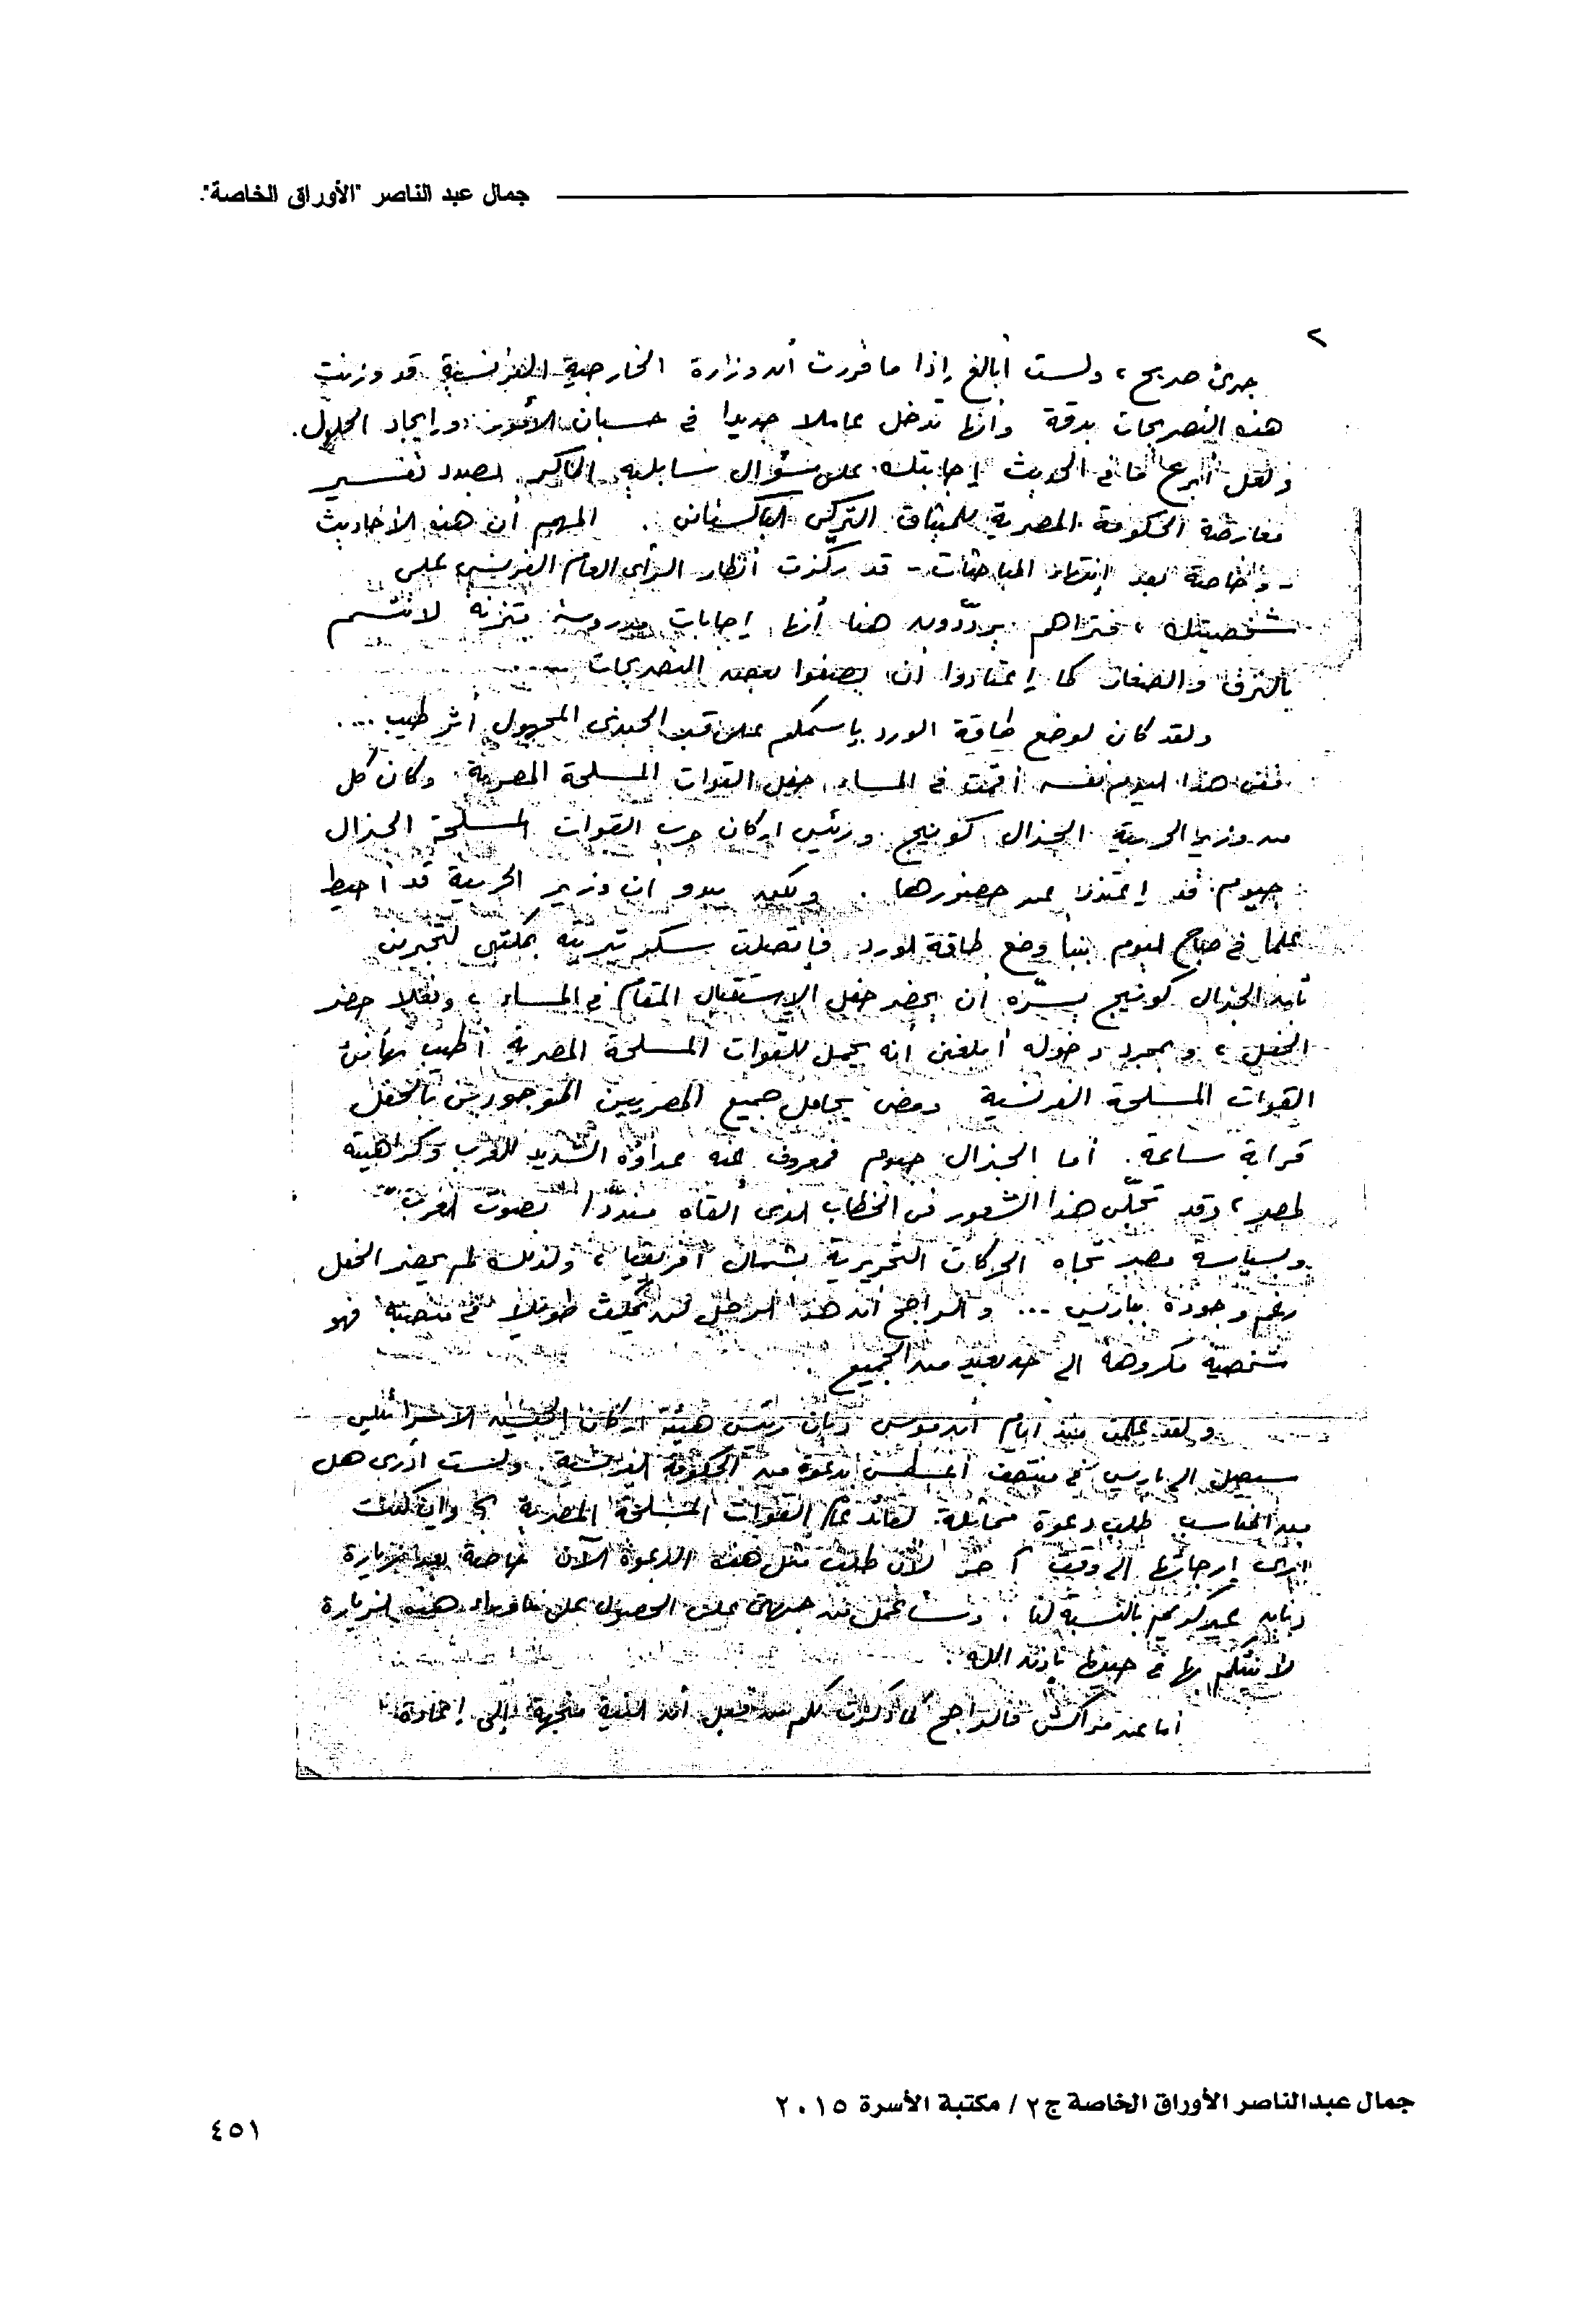 جمال عبد الناصر "الأوراق الخاصة".
٢
جرئ صريح، ولست أبالغ إذا ما قررت أن وزارة الخارجية الفرنسية قد وزنت
هذه التصريحات بدقة وأنها تدخل عاملا جديدا فى حسبان الأمور وإيجاد الحلول.
ولعل أبرع ما فى الحديث إجابتك على سؤال الماكر بصدد تفسير
معارضة الحكومة المصرية للميثاق التركى الباكستانى. المهم أن هذه الأحاديث
- وخاصة بعد إنتهاء المباحثات - قد ركزت أنظار الرأى العام الفرنسى على
شخصيتك، فتراهم يردّدون هنا أنها إجابات مدروسة متزنة لا تتسم
بالنزق والصغار كما إعتادوا أن يصفوا بعض التصريحات
ولقد كان لوضع طاقة الورد باسمكم على قبر الجندى المجهول أثر طيب ....
ففى هذا اليوم نفسه أقمت فى المساء حفل القوات المسلحة المصرية وكان كل
من وزير الحربية الجنرال كونيج ورئيس اركان حرب القوات المسلحة الجنرال
جيوم قد إعتذرا عن حضورهما. ولكن يبدو ان وزير الحربية قد أحيط
علما فى صباح اليوم بنبا وضع طاقة الورد فإتصلت سكرتيرته بمكتبى لتخبرنى
بأن الجنرال كونيج يسّره أن يحضر حفل الإستقبال المقام فى المساء، وفعلا حضر
الحفل، وبمجرد دخوله أبلغنى أنه يحمل للقوات المسلحة المصرية أطيب تهانئ
القوات المسلحة الفرنسية ومضى يجامل جميع المصريين الموجودين بالحفل
قرابة ساعة. أما الجنرال جيوم فمعروف عنه عداؤه الشديد للعرب وكراهيته
لمصر، وقد تجلّى هذا الشعور فى الخطاب الذى ألقاه مندّدا بصوت العرب
وسياسة مصر تجاه الحركات التحريرية بشمال أفريقيا، ولذلك لم يحضر الحفل
رغم وجوده بباريس ... والراجح أن هذا الرجل لن يمكث طويلا فى منصبه فهو
شخصية مكروهة الى حد بعيد من الجميع.
ولقد علمت منذ أيام أن موسى ديان رئيس هيئة اركان الجيش الاسرائيلى
سيصل الى باريس فى منتصف أغسطس بدعوة من الحكومة الفرنسية. ولست أدرى هل
من المناسب طلب دعوة مماثلة لقائد عام القوات المسلحة المصرية؟ وإن كنت
أرى إرجائها الى وقت آخر لأن طلب مثل هذه الدعوة الآن خاصة بعد زيارة
ديان غير كريم بالنسبة لنا. وسأعمل من جهتى على الحصول على ما وراء هذه الزيارة
لأبلغكم بها فى حينها بإذن الله.
أما عن مراكش فالراجح كما ذكرت لكم من قبل أن النية متجهة إلى إعادة
جمال عبدالناصر الأوراق الخاصة ج٢ / مكتبة الأسرة ٢٠١٥
٤٥١